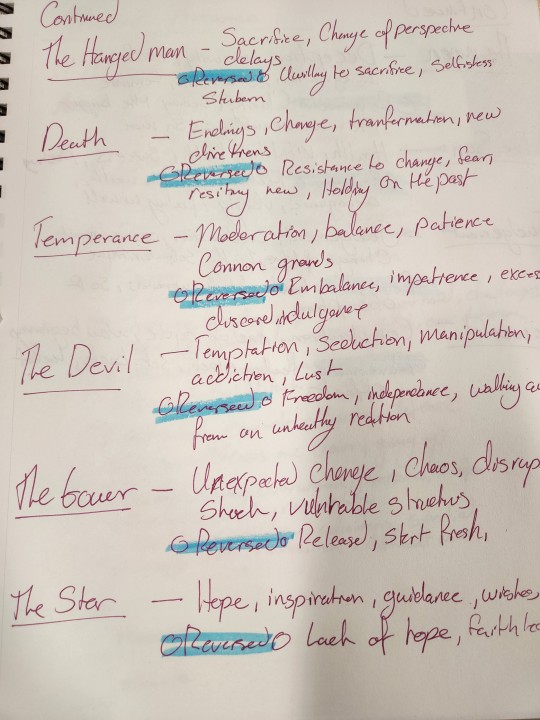 Continued
The Hanged man - Sacrifice, Change of perspective
delays
Reversed Unwillng to sacrifice, Selfishless
Stubern
Death - Endings, Change, tranfermation, new
directrens
Reversed Resistance to change, fear,
resitny new, Holding on the past
Temperance - Moderation, balance, patience
Connon grands
Reversed Embalance, impatience, exces
discord, indulgence
The Devil - Temptation, Seduction, manipulation,
addiction, Lust
Reversed Freedom, independance, walking aw
from an unhealthy
The Tower - Unexpected Change, Chaos, disrup
Shock, vulnrable structurs
Reversed Release, Start fresh,
The Star - Hope, inspiration, guidance, wishes
Reversed Lack of hope, faithle